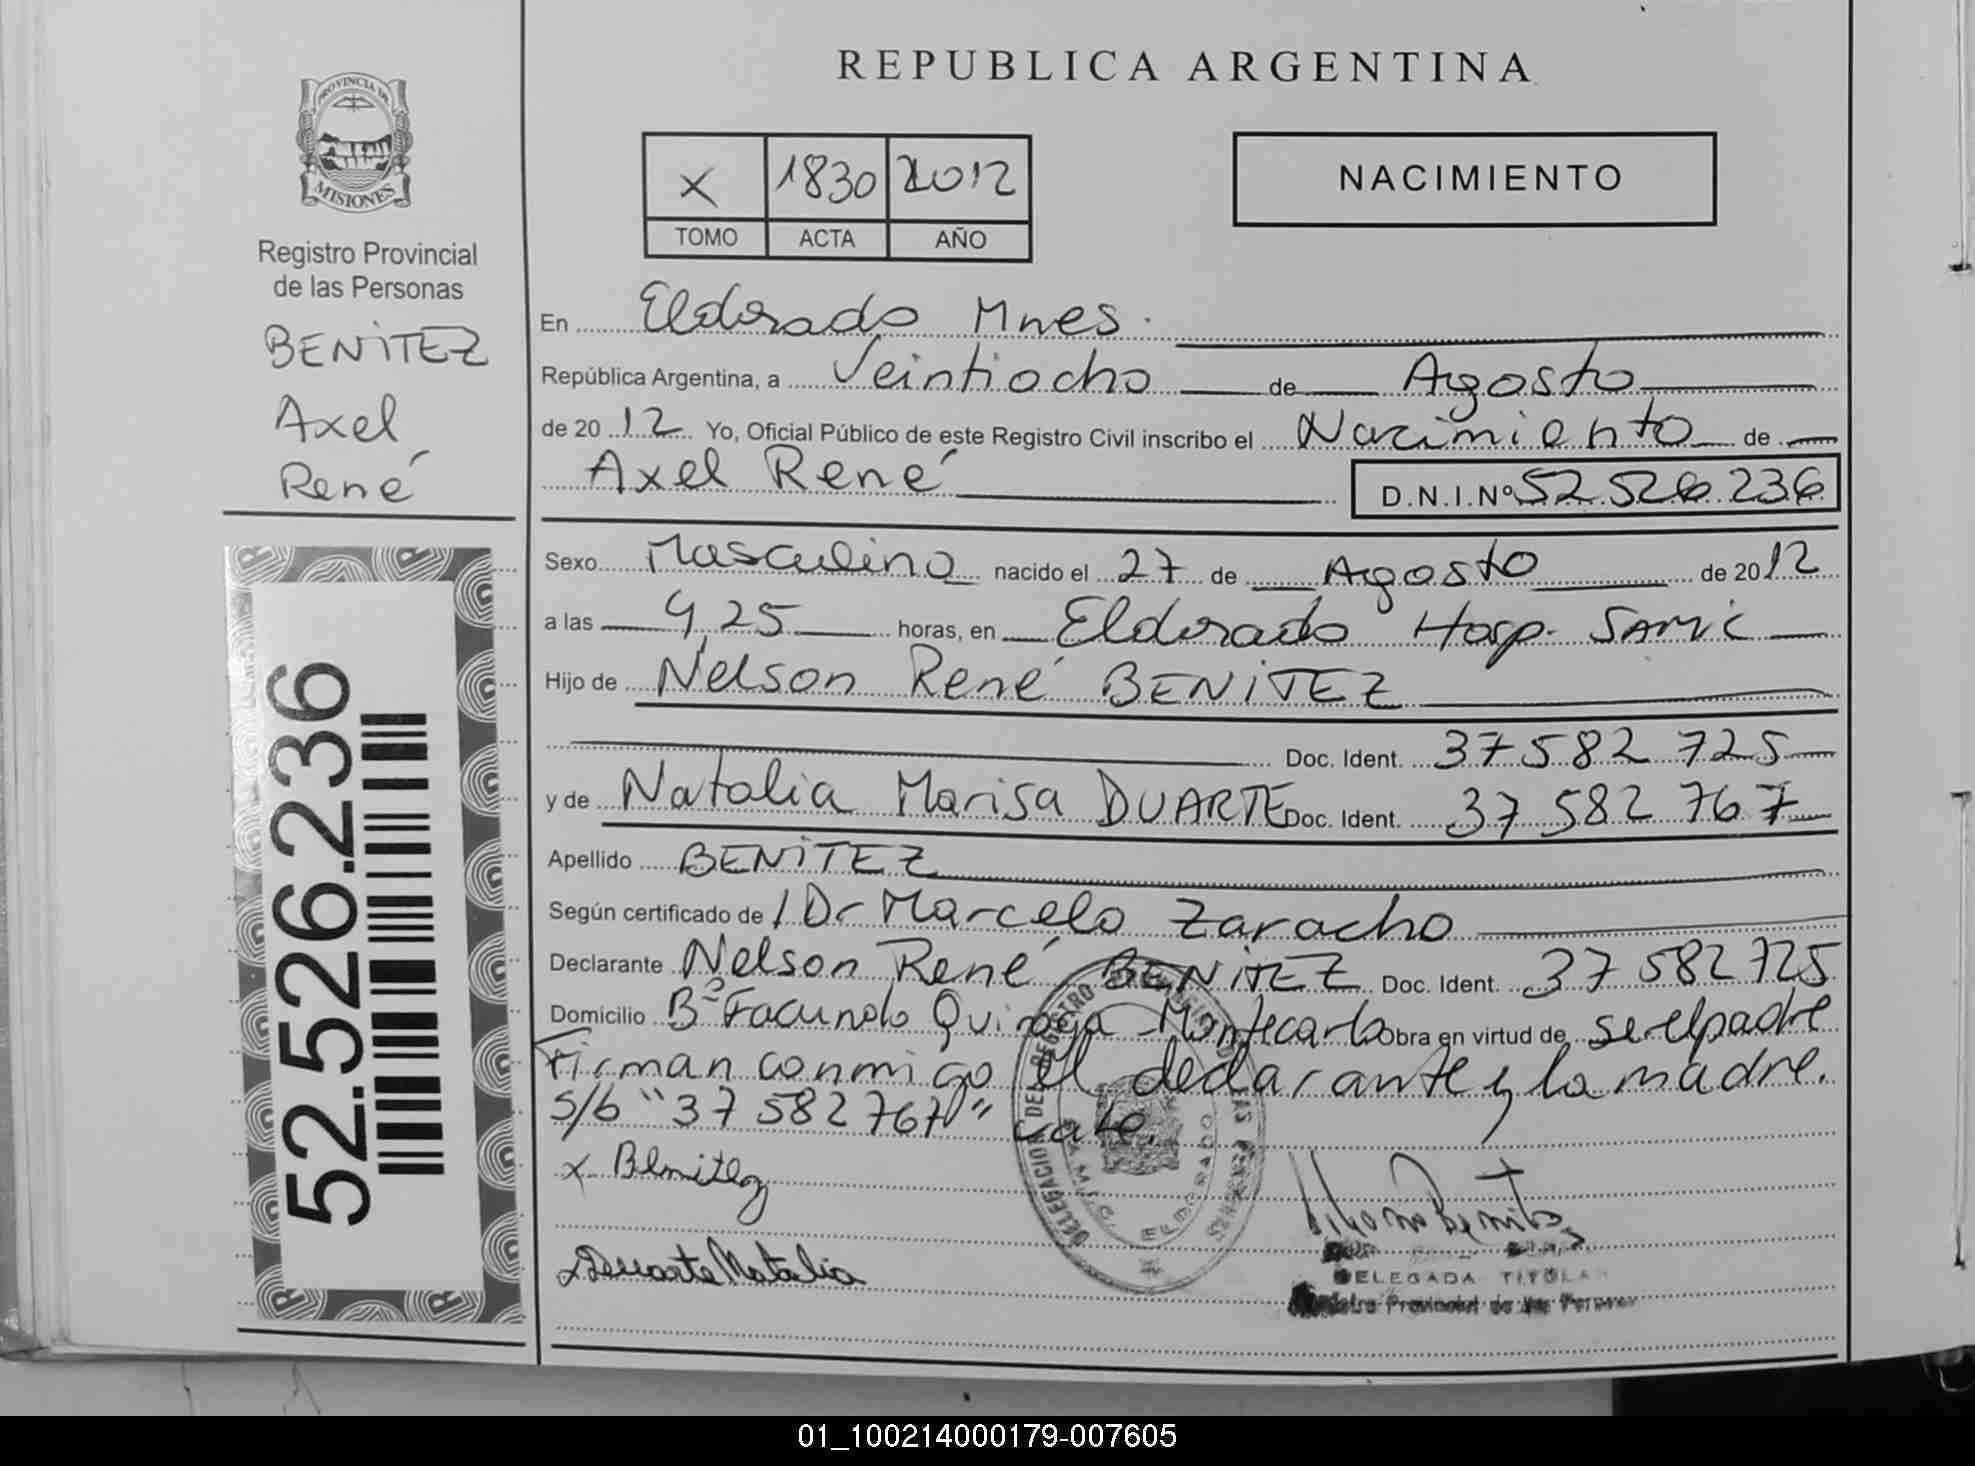 REPUBLICA ARGENTINA
PROVINCIA DE
MISIONES
Registro Provincial
de las Personas
BENITEZ
Axel
René
52.526.236
X 1830 2012
TOMO ACTA AÑO
NACIMIENTO
En Eldorado Mnes.
República Argentina, a Veintiocho de Agosto
de 2012 Yo, Oficial Público de este Registro Civil inscribo el Nacimiento de
Axel René D.N.I.Nº 52 526 236
Sexo Masculino nacido el 27 de Agosto de 2012
a las 9,25 horas, en Eldorado Hosp. SAMIC
Hijo de Nelson René BENITEZ
Doc. Ident. 37 582 725
y de Natalia Marisa DUARTE Doc. Ident. 37 582 767
Apellido BENITEZ
Según certificado de / Dr Marcelo Zaracho
Declarante Nelson René BENITEZ Doc. Ident. 37 582 725
Domicilio Bº Facundo Quiroga - Montecarlo Obra en virtud de ser el padre
Firman conmigo el declarante y la madre.
S/b "37 582 767" Vale.
x Benitez
x Duarte Natalia
ELDORADO
DELEGADA TITULAR
Registro Provincial de las Personas
01_100214000179-007605